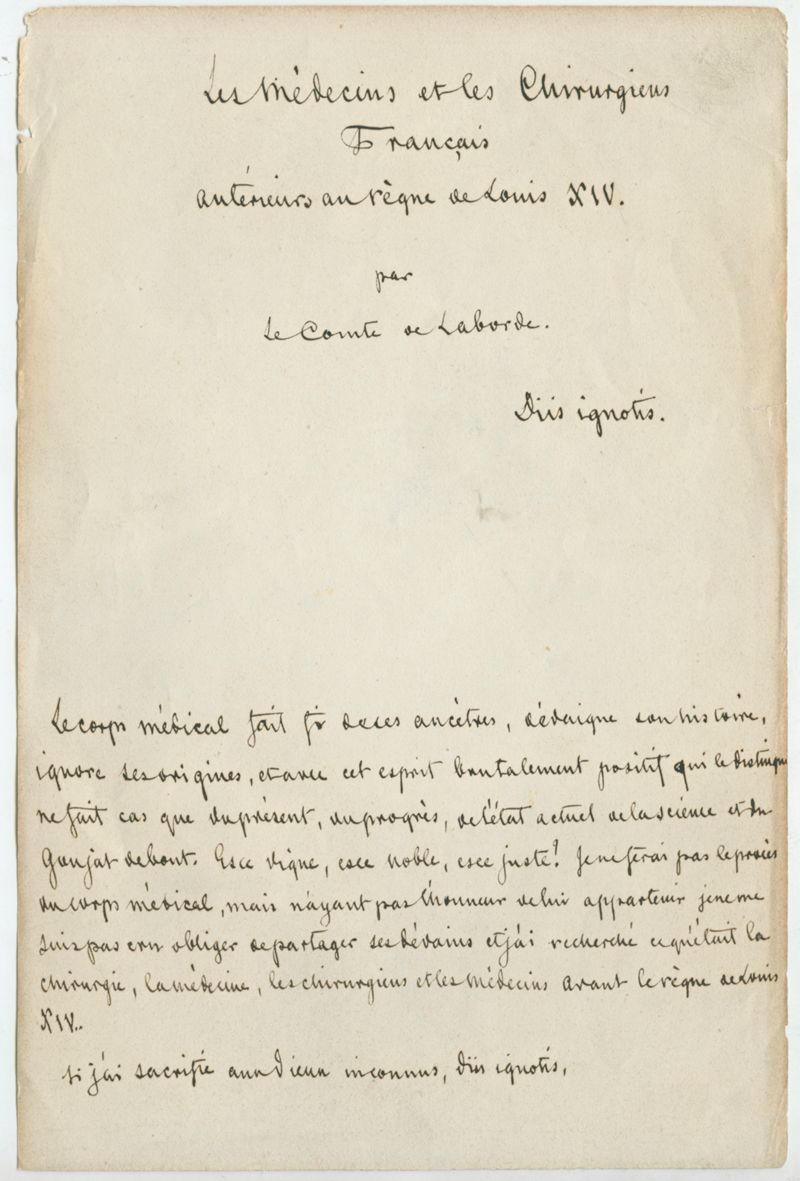 Les Médecins et les Chirurgiens
Français
antérieurs au règne de Louis XIV.
par
Le Comte de Laborde.
Diis ignotis.
Le corps médical fait fi de ces ancêtres, dédaigne son histoire,
ignore ses origines, et avec cet esprit brutalement positif qui le distingue
ne fait cas que du présent, du progrès, de l'état actuel de la science et du
Goujat debout. Esce digne, esce noble, esce juste? Je ne ferai pas le procès
du corps médical, mais n'ayant pas l'honneur de lui appartenir je ne me
suis pas cru obliger de partager ses dédains et j'ai recherché ce qu'était la
chirurgie, la médecine, les chirurgiens et les Médecins avant le règne de Louis
XIV.
si j'ai sacrifié aux Dieux inconnus, Diis ignotis,